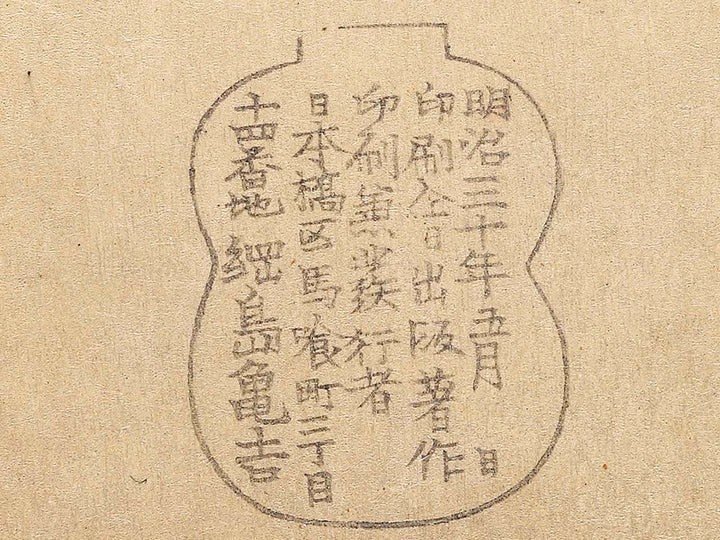 明治三十年五月　日
印刷仝日出版著作
印刷兼発行者
日本橋区馬喰町二丁目
十四番地 綱島亀吉